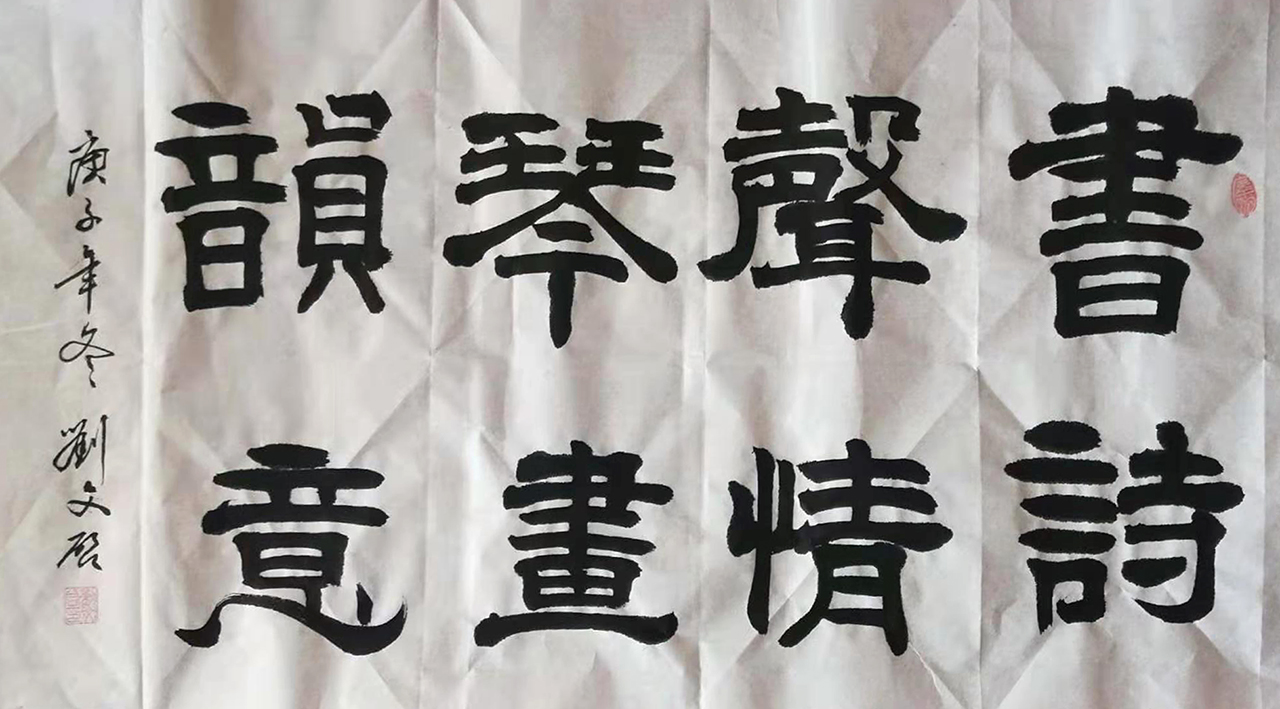 書聲琴韻
詩情畫意
庚子年冬 劉文啓